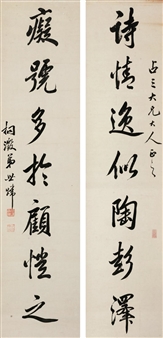 詩情逸似陶彭澤
占三大兄大人正之
癡號多於顧愷之
弟世